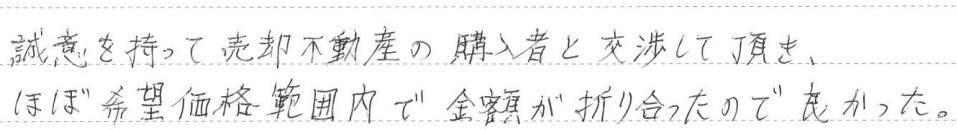 誠意を持って売却不動産の購入者と交渉して頂き、
ほぼ希望価格範囲内で金額が折り合ったので良かった。